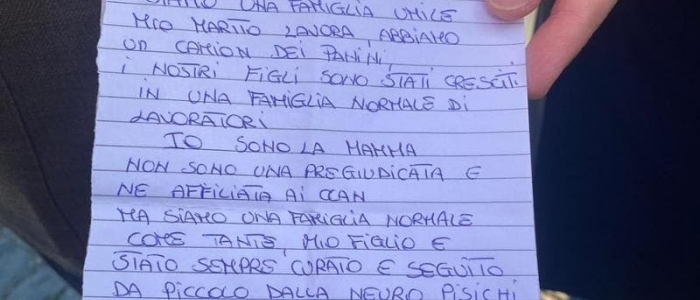 SIAMO UNA FAMIGLIA UMILE
MIO MARITO LAVORA, ABBIAMO
UN CAMION DEI PANINI,
I NOSTRI FIGLI SONO STATI CRESCITI
IN UNA FAMIGLIA NORMALE DI
LAVORATORI
IO SONO LA MAMMA
NON SONO UNA PREGIUDICATA E
NE AFFILIATA AI CCAN
MA SIAMO UNA FAMIGLIA NORMALE
COME TANTE, MIO FIGLIO E
STATO SEMPRE CURATO E SEGUITO
DA PICCOLO DALLA NEURO PISICHI